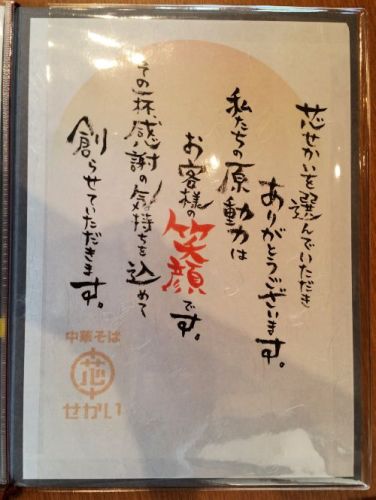 芯せかいを選んでいただき
ありがとうございます。
私たちの原動力は
お客様の笑顔です。
その一杯感謝の気持ちを込めて
創らせていただきます。
中華そば
芯
せかい